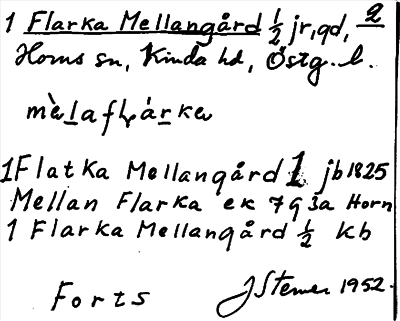 1 Flarka Mellangård ½ jr, qd, 2
Horns sn, Kinda hd, Östg. l.
mèlaflárka
1 Flatka Mellangård 1 jb 1825
Mellan Flarka ek 7 q 3a Horn
1 Flarka Mellangård ½ kb
Forts J Stemer 1952.